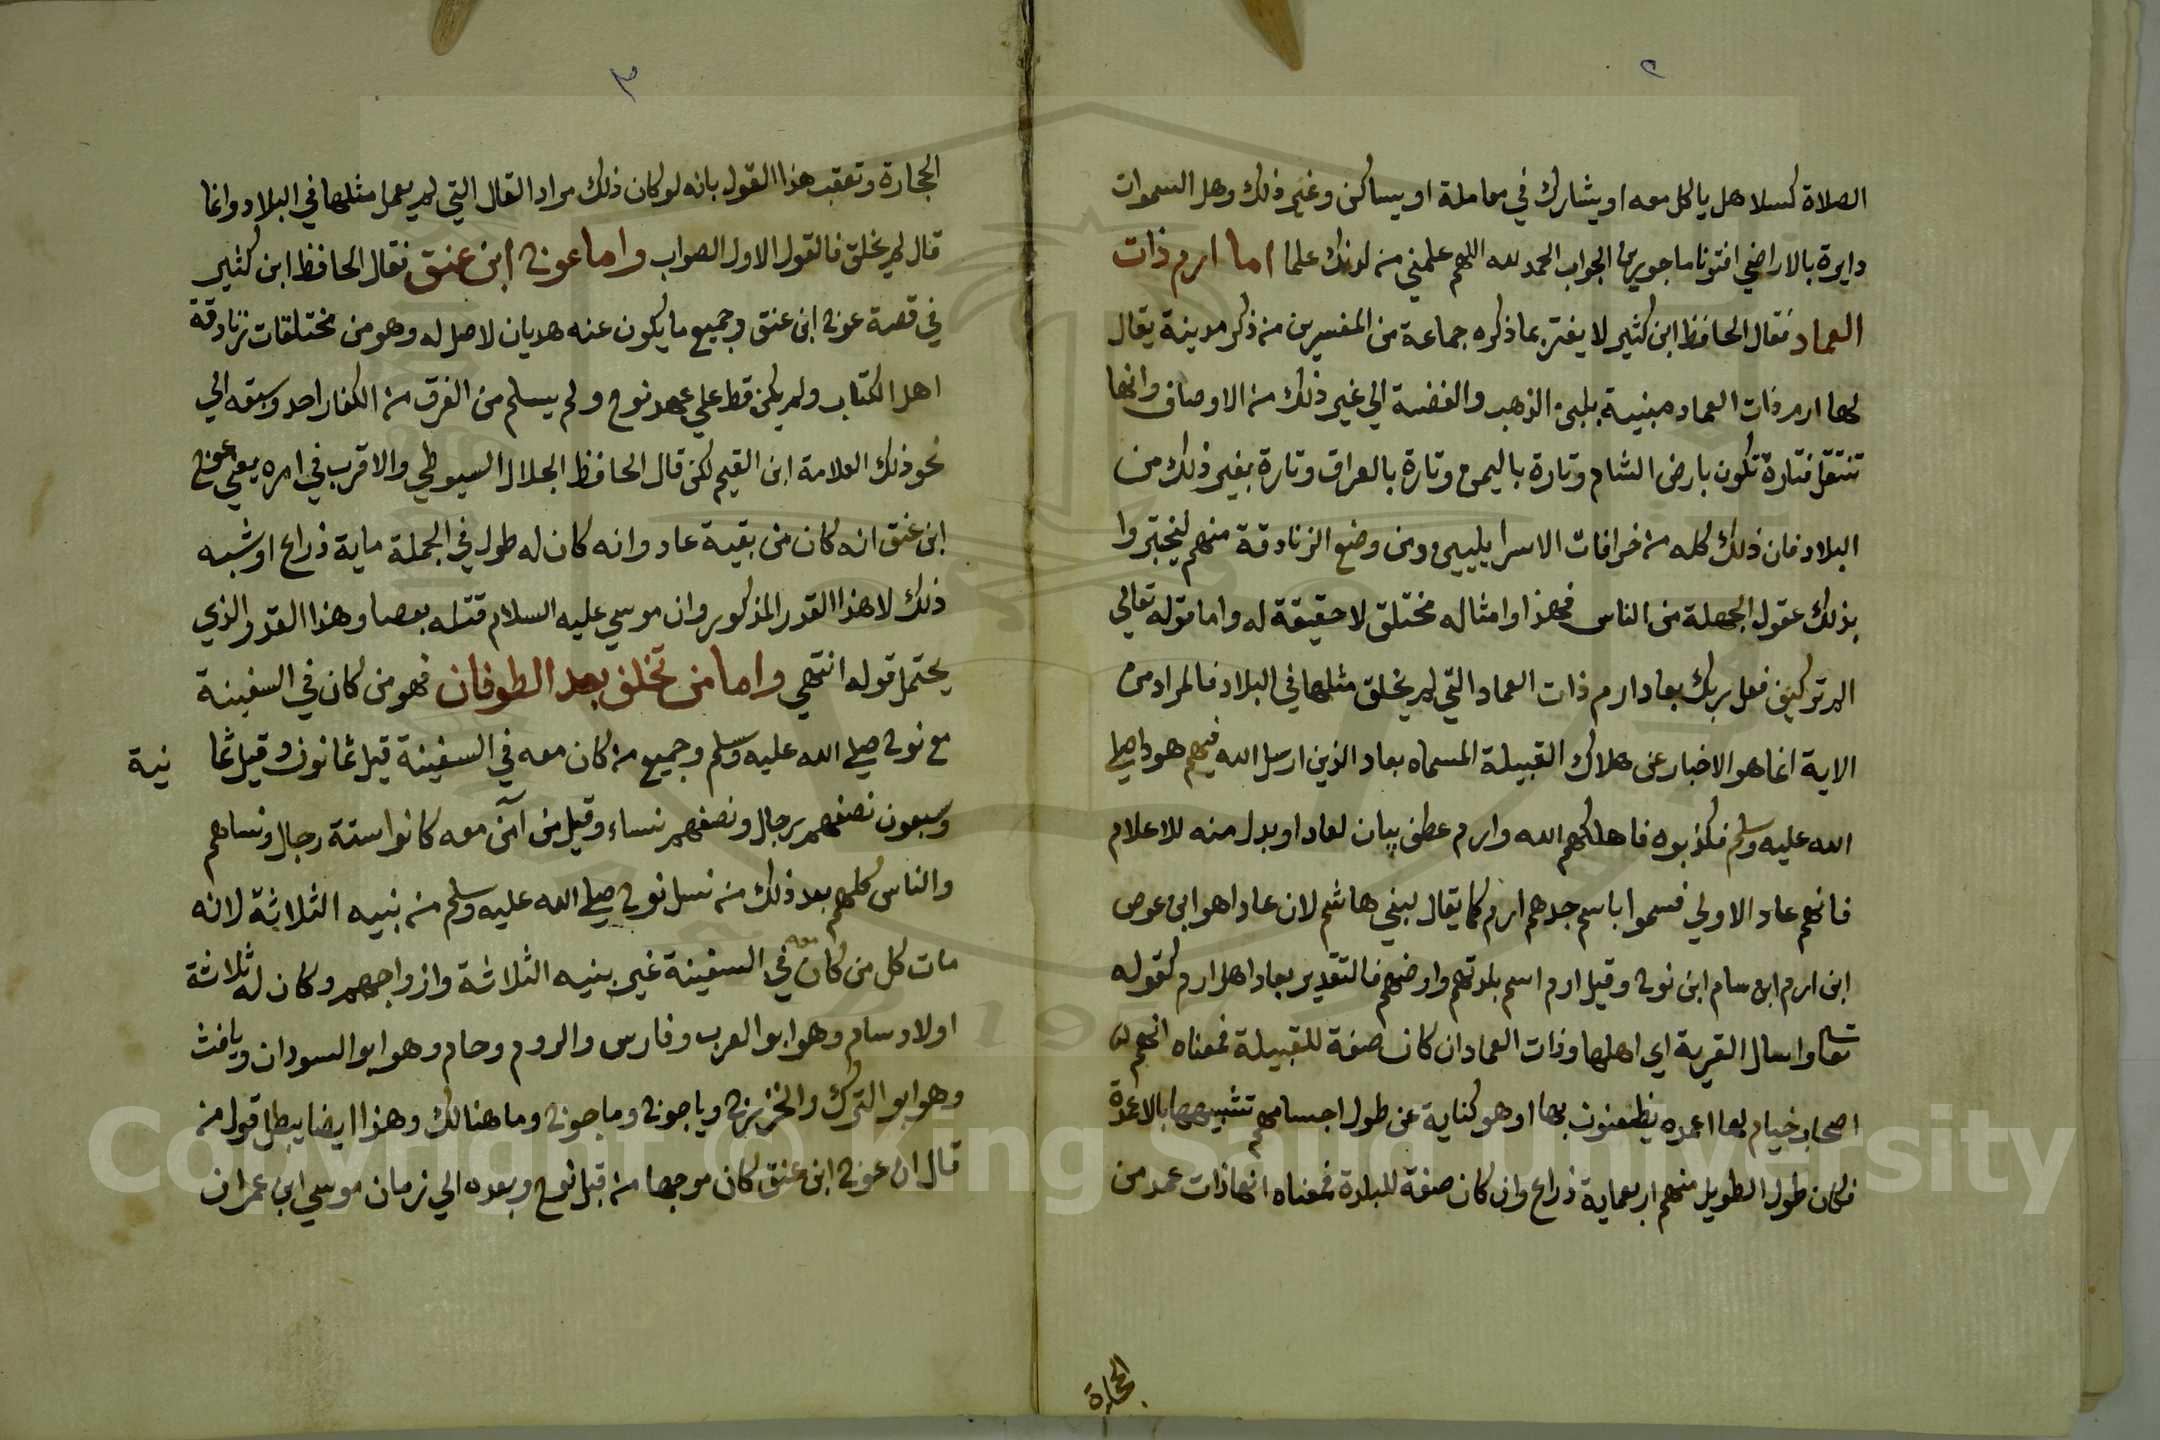 ٢
الصلاة كسلا هل ياكل معه او يشارك في معاملة او يساكن وغير ذلك وهل السموات
دايرة بالاراضي افتونا ماجورين الجواب الحمد لله اللهم علمني من لدنك علما اما ارم ذات
العماد فقال الحافظ ابن كثير لا يغتر بما ذكره جماعة من المفسرين من ذكر مدينة يقال
لها ارم ذات العماد مبنية بلبن الذهب والفضة الي غير ذلك من الاوصاف وانها
تنتقل فتارة تكون بارض الشام وتارة باليمن وتارة بالعراق وتارة بغير ذلك من
البلاد فان ذلك كله من خرافات الاسرايليين ومن وضع الزنادقة منهم ليختبروا
بذلك عقول الجهلة من الناس فهذا وامثاله مختلق لا حقيقة له واما قوله تعالي
الم تر كيف فعل ربك بعاد ارم ذات العماد التي لم يخلق مثلها في البلاد فالمراد من
الاية انما هو الاخبار عن هلاك القبيلة المسماه بعاد الذين ارسل الله فيهم هودا صلي
الله عليه وسلم فكذبوه فاهلكهم الله وارم عطف بيان لعاد او بدل منه للاعلام
فانهم عاد الاولي فسموا باسم جدهم ارم كما يقال لبني هاشم لان عادا هو ابن عوص
ابن ارم ابن سام ابن نوح وقيل ارم اسم بلدتهم وارضهم فالتقدير بعاد اهل ارم كقوله
تعالي واسال القرية اي اهلها وذات العماد ان كان صفة للقبيلة فمعناه انهم
اصحاب خيام لها اعمده يظعنون بها او هو كناية عن طول اجسامهم تشبيهها بالاعمدة
فكان طول الطويل منهم اربعماية ذراع وان كان صفة للبلدة فمعناه انها ذات عمد من
الحجارة
٣
الحجارة وتعقب هذا القول بانه لو كان ذلك مراد القال التي لم يعمل مثلها في البلاد وانما
قال لم يخلق فالقول الاول الصواب واما عوج ابن عنق فقال الحافظ ابن كثير
في قصة عوج ابن عنق وجميع ما يكون عنه هديان لا اصل له وهو من مختلقات زنادقة
اهل الكتاب ولم يكن قط علي عهد نوح ولم يسلم من الغرق من الكفار احد وسبقه الي
نحو ذلك العلامة ابن القيم لكن قال الحافظ الجلال السيوطي والاقرب في امره يعني عوج
ابن عنق انه كان من بقية عاد وانه كان له طول في الجملة ماية ذراع او شبه
ذلك لا هذا القدر المذكور وان موسي عليه السلام قتله بعصا وهذا القدر الذي
يحتمل قوله انتهي واما من تخلف بعد الطوفان فهو من كان في السفينة
مع نوح صلي الله عليه وسلم وجميع من كان معه في السفينة قيل ثمانون وقيل ثما نية
وسبعون نصفهم رجال ونصفهم نساء وقيل من آمن معه كانوا ستة رجال ونساهم
والناس كلهم بعد ذلك من نسل نوح صلي الله عليه وسلم من بنيه الثلاثة لانه
مات كل من كان معه في السفينة غير بنيه الثلاثة وازواجهم وكان له ثلاثة
اولاد سام وهو ابو العرب وفارس والروم وحام وهو ابو السودان ويافث
وهو ابو الترك والخزرج وياجوج وماجوج وما هنالك وهذا ايضا يبطل قول من
قال ان عوج ابن عنق كان موجها من قبل نوح وبعده الي زمان موسي ابن عمران
Copyright © King Saud University